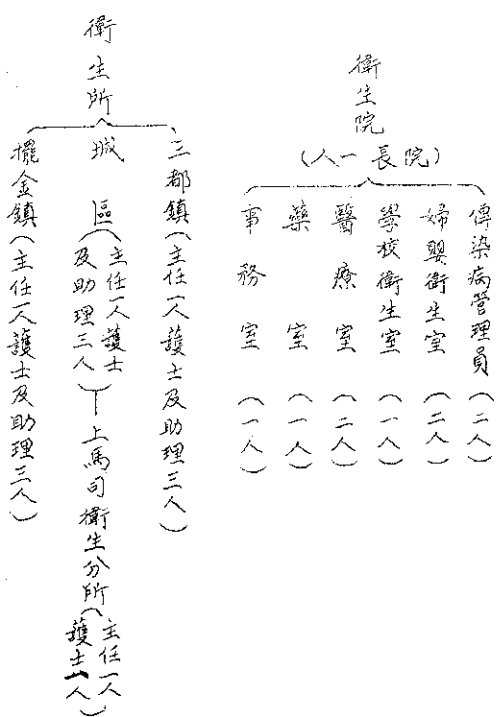 衛生院
(院長一人)
傳染病管理員(二人)
婦嬰衛生室(二人)
學校衛生室(一人)
醫療室(二人)
藥室(一人)
事務室(一人)
衛生所
三都鎮(主任一人護士及助理三人)
城區(主任一人護士
及助理三人)—上馬司衛生分所(主任一人
護士一人)
擺金鎮(主任一人護士及助理三人)